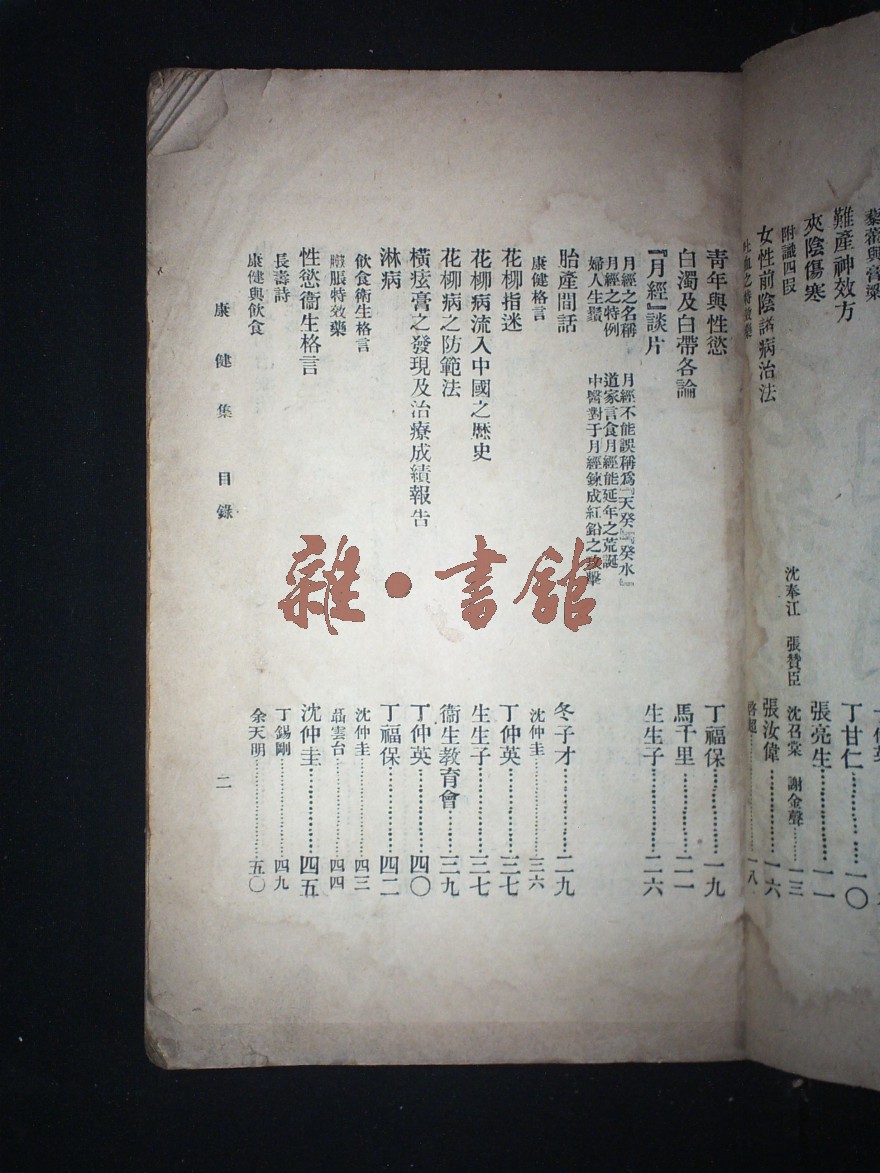 難產神效方 丁甘仁 一〇
夾陰傷寒 張亮生 一一
附議四段 沈奉江 張贊臣 沈召棠 謝金聲 一三
女性前陰諸病治法 張汝偉 一六
吐血之特效藥 啓超 一八
青年與性慾 丁福保 一九
白濁及白帶各論 馬千里 二一
『月經』談片 生生子 二六
月經之名稱 月經不能誤稱爲『天癸』『癸水』
月經之特例 道家言食月經能延年之荒誕
婦人生鬚 中醫對于月經鍊成紅鉛之攻擊
胎產閒話 冬子才 二九
康健格言 沈仲圭 三六
花柳指迷 丁仲英 三七
花柳病流入中國之歷史 生生子 三七
花柳病之防範法 衞生教育會 三九
橫痃膏之發現及治療成績報告 丁仲英 四〇
淋病 丁福保 四二
飲食衛生格言 沈仲圭 四三
臌脹特效藥 聶雲台 四四
性慾衞生格言 沈仲圭 四五
長壽詩 丁錫剛 四九
康健與飲食 余天明 五〇
康健集 目錄 二
雜·書館